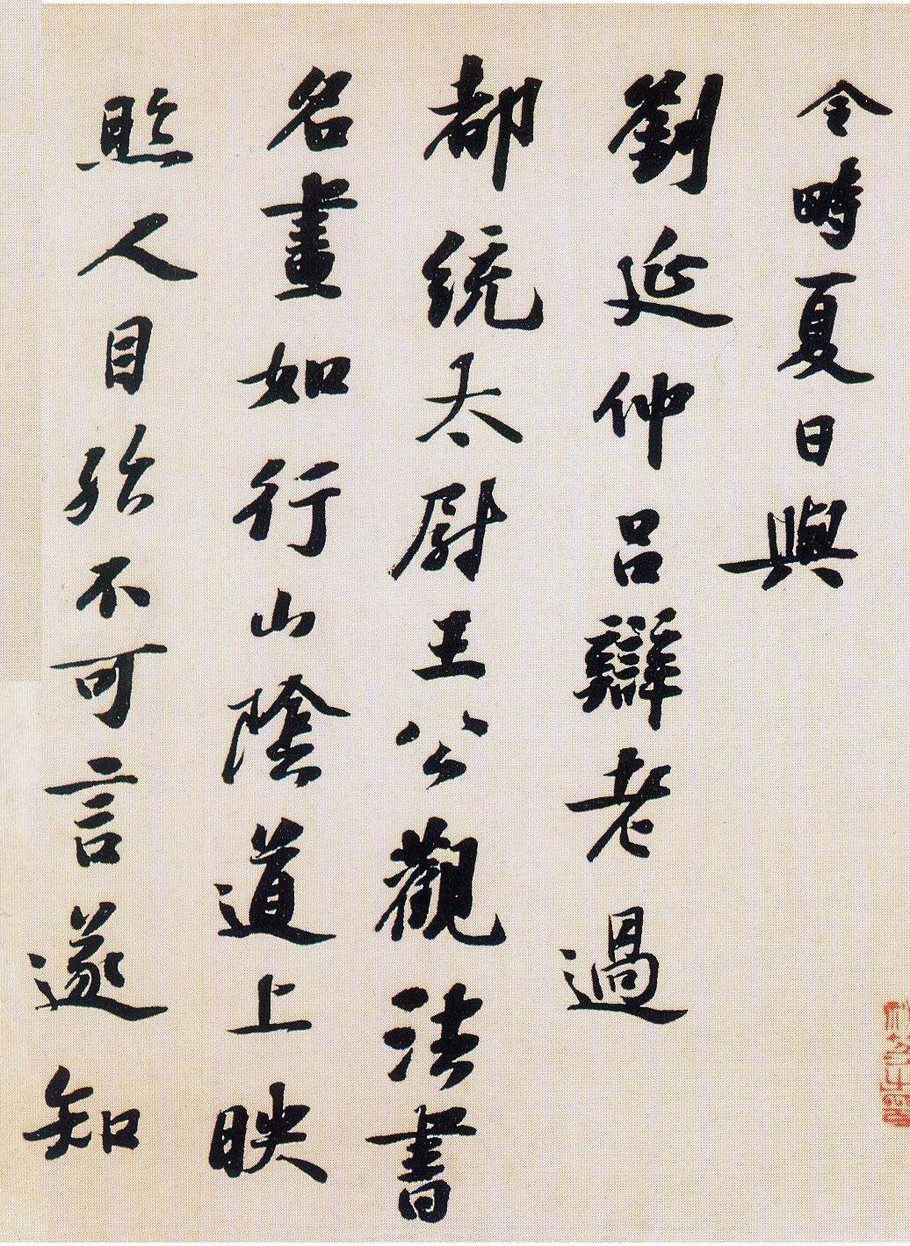 令畤夏日與
劉延仲呂辯老過
都統太尉王公觀法書
名畫如行山陰道上映
照人目殆不可言遂知